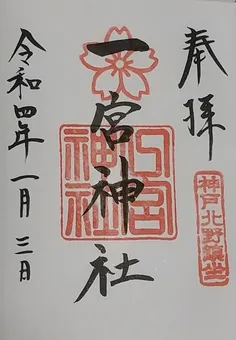 奉拝
神戸北野鎮座
一宮神社
一宮神社
令和四年一月三日